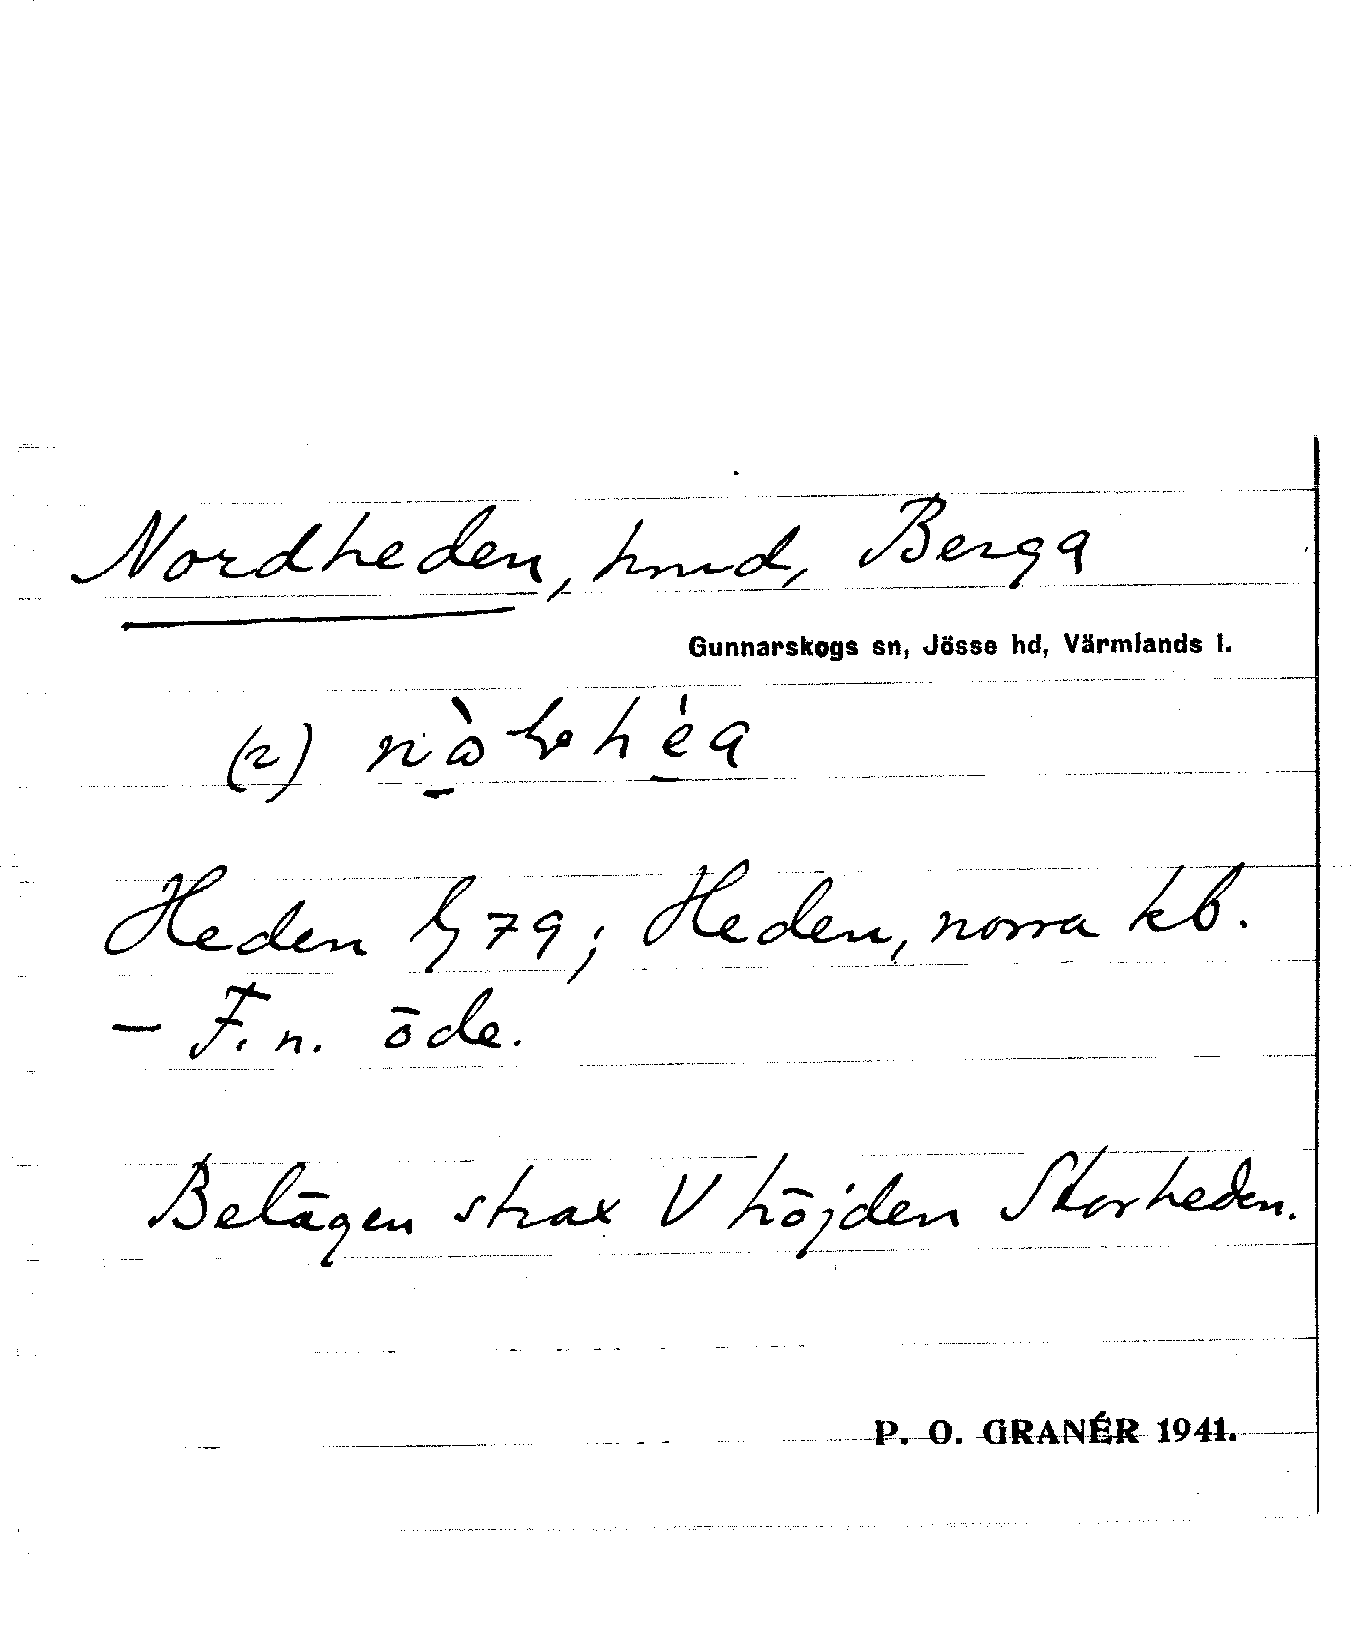 Nordheden, hmd, Berga
Gunnarskogs sn, Jösse hd, Värmlands l.
(2)
Heden 79; Heden, norra kb.
— F. n. öde.
Belägen strax V höjden Storheden.
P. O. GRANÉR 1941.